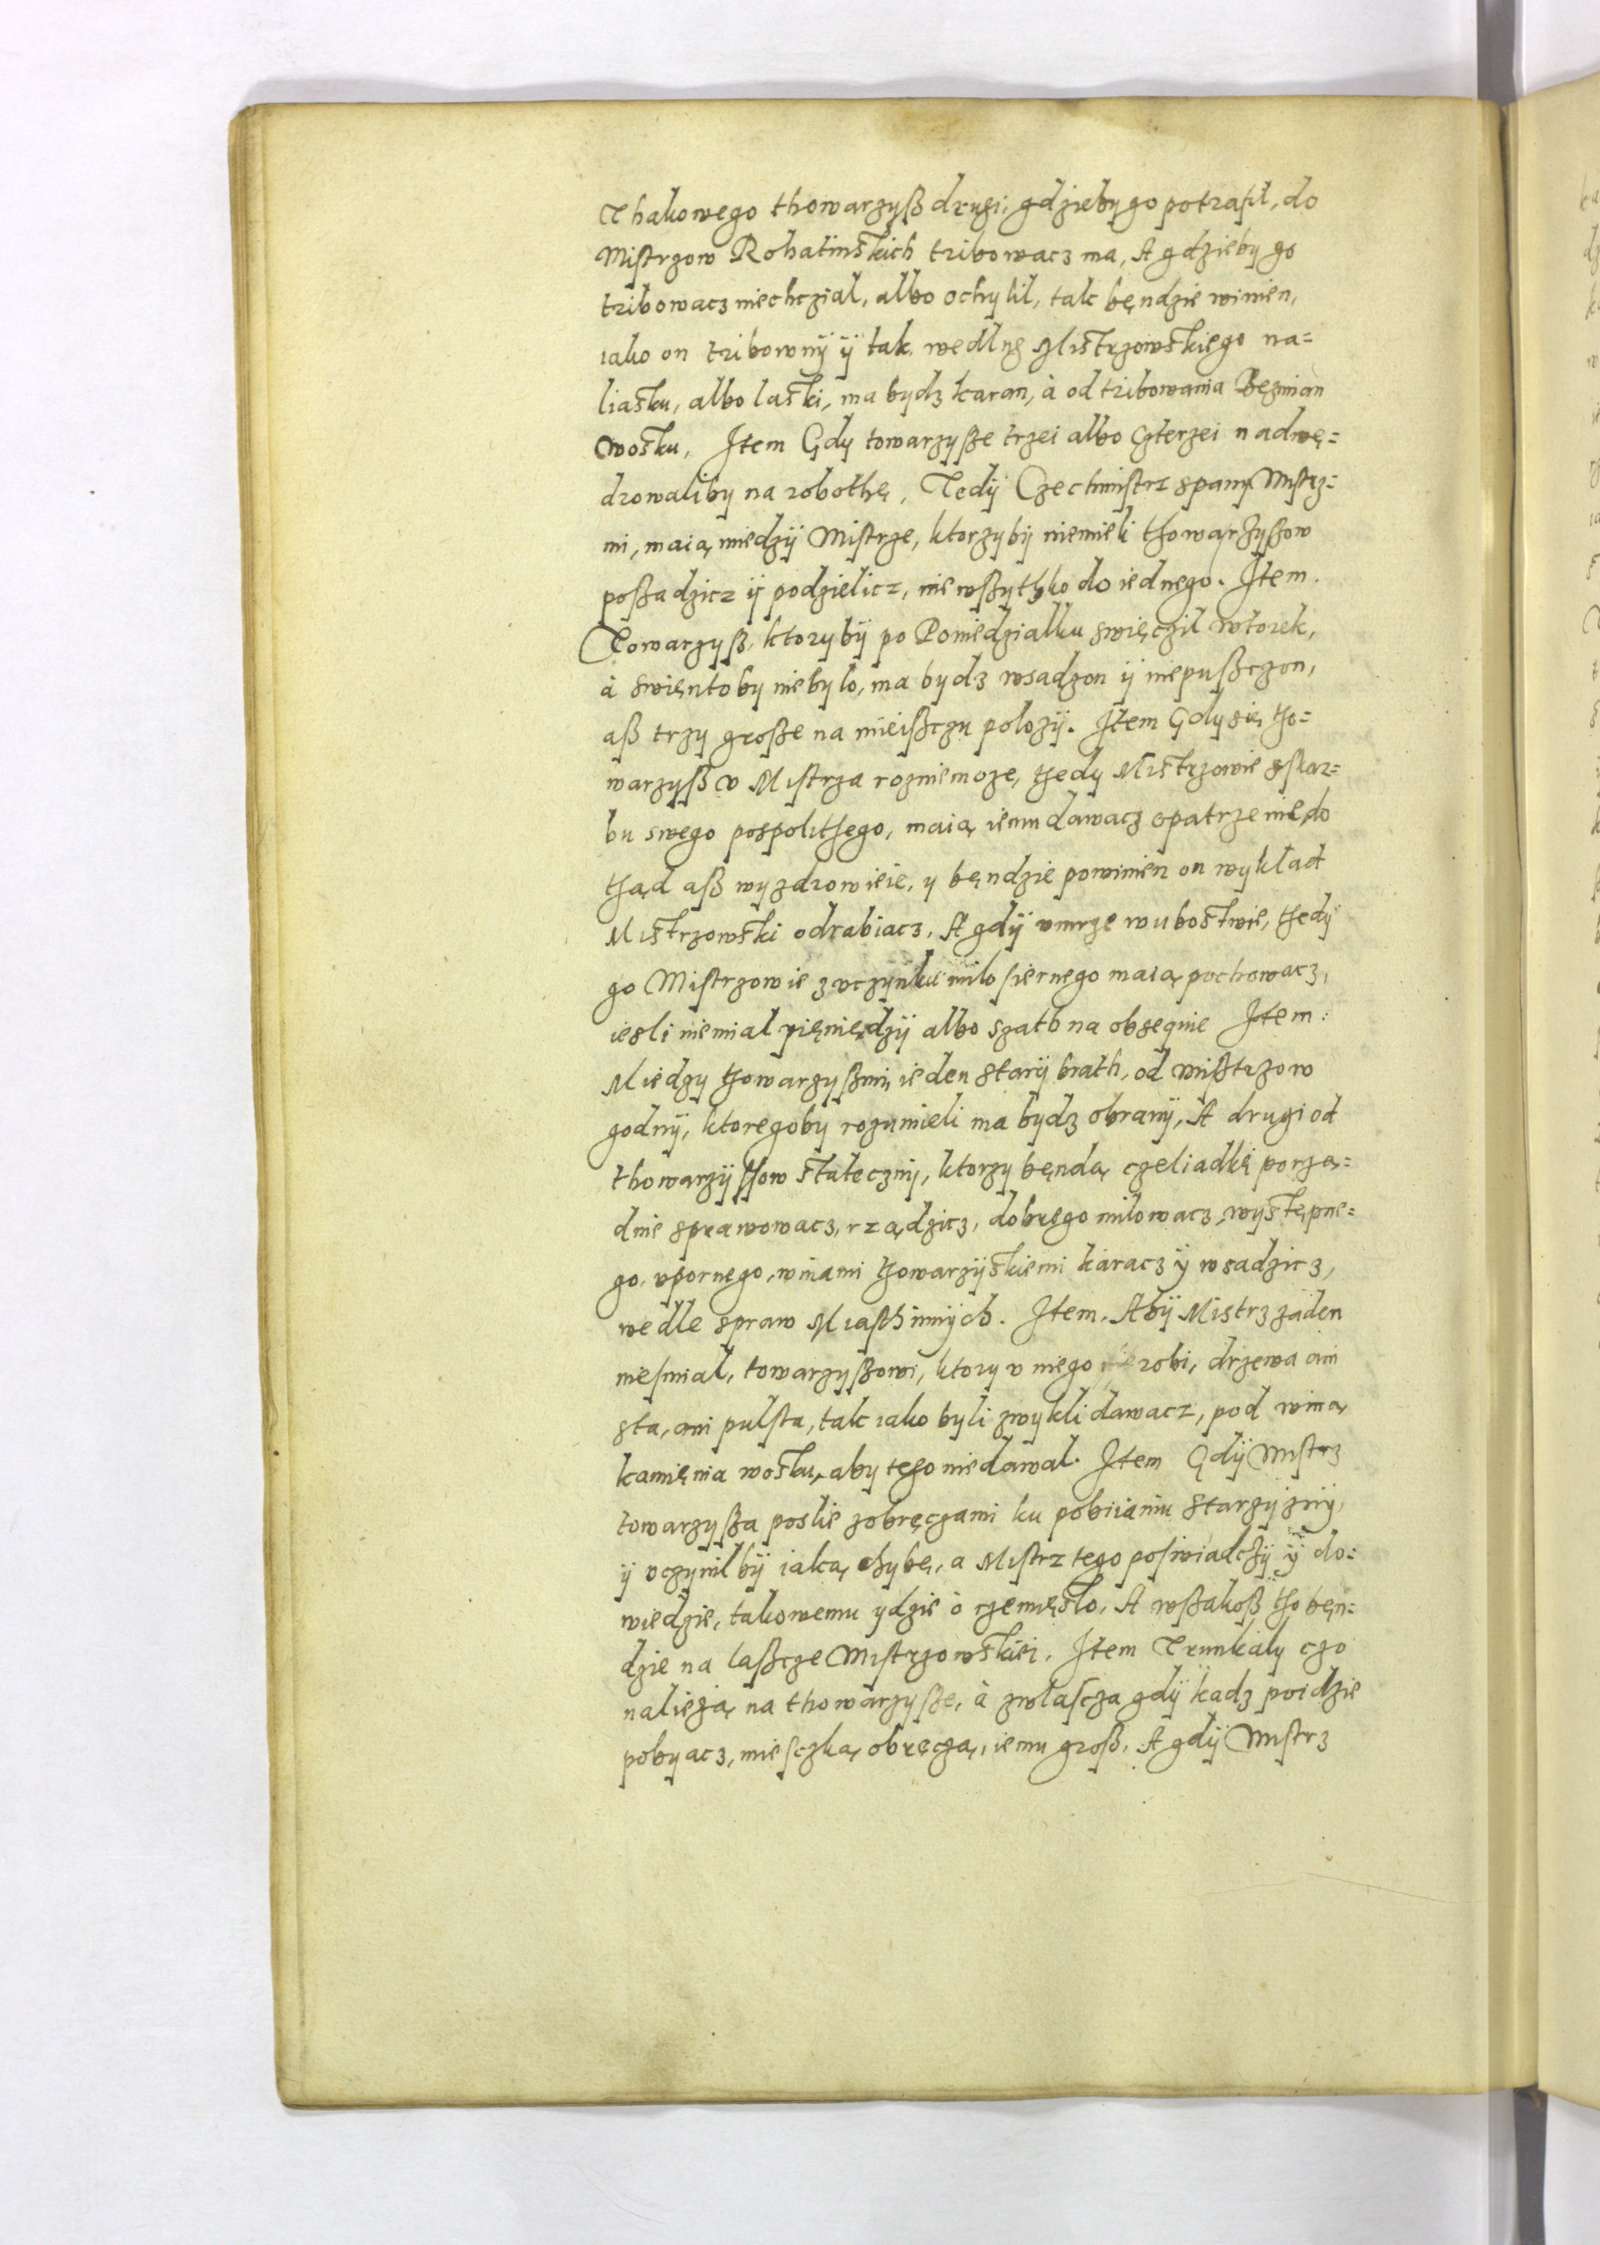 Thakowego thowarzyß drugi, gdzieby go potrafil, do
Mistrzow Rohatinskich tribowacz ma, A gdzieby go
tribowacz niechczial, albo ochylil, tak będzie winien,
iako on tribowny ÿ tak wedlug Mistrzowskiego na=
liasku, albo laski, ma bydz karan, à od tribowania Bezmian
wosku, Item Gdy towarzysze trzei albo czterzei nadwę=
drowaliby na robothę, Tedÿ Czechmistrz spany Mistrz=
mi, maią miedzÿ Mistrze, ktorzybÿ niemieli thowarzyßow
poßadzicz ÿ podzielicz, nie wßythko do iednego. Item.
Towarzyß, ktorybÿ po Poniedzialku swięczil wtorek,
à swiento by niebylo, ma bydz wsadzon ÿ niepußczon,
aß trzy große na mieißczu polozÿ. Item Gdy się tho=
warzyß v Mistrza rozniemoze, thedy Mistrzowie s skar=
bu swego pospolithego, maią iemu dawacz opatrzenie, do
thąd aß wyzdrowieie, y bęndzie powinien on wyklad
Mistrzowski odrabiacz. A gdÿ vmrze w ubostwie, thedÿ
go Mistrzowie z vczynku milosiernego maią pochowacz,
iesli niemial pięniędzÿ albo szath na obseqnie Item:
Miedzy thowarzyßmi, ieden starÿ brath, od mistrzow
godnÿ, ktoregoby rozumieli ma bydz obranÿ, A drugi od
thowarzÿßow statecznÿ, ktorzy bęndą czeliadkę porzą=
dnie sprawowacz, rządzicz, dobrego milowacz, występne=
go, vpornego, winami thowarzÿskiemi karacz ÿ wsadzicz,
wedle spraw Miasth innÿch. Item. Abÿ Mistrz żaden
niesmial, towarzyßowi, ktory v niego robi, drzewa ani
sta, ani pulsta, tak iako byli zwykli dawacz, pod winą
kamięnia wosku, aby tego niedawal. Item Gdÿ Mistrz
towarzyßa poslie zobręczami ku pobiianiu starzyznÿ,
ÿ vczynil bÿ iaką chybę, a Mistrz tego poswiadczÿ ÿ do=
wiedzie, takowemu ydzie o rzemięslo, A wßakoß tho bęn=
dzie na laßcze Mistrzowskiei. Item Trunkaly czo
nalieżą na thowarzysze, à zwlascza gdÿ kadz poidzie
pobyacz, mieszką obręczą, iemu groß. A gdÿ Mistrz